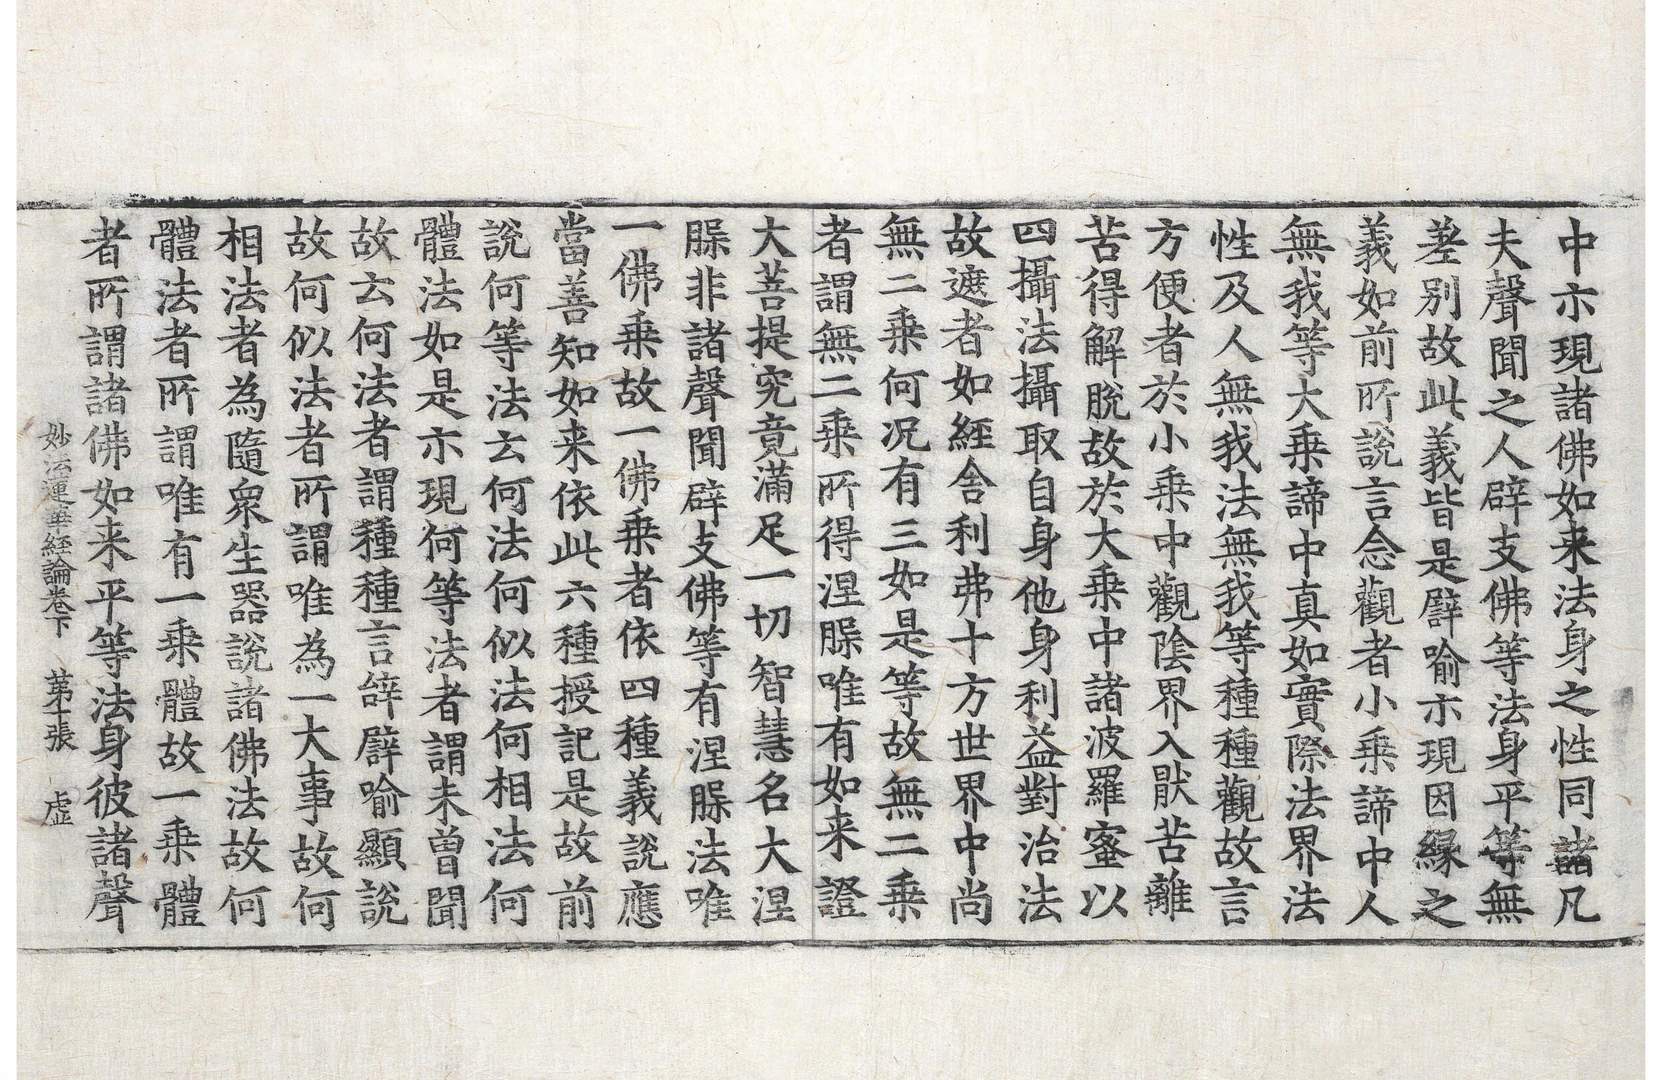 中示現諸佛如来法身之性同諸凡
夫聲聞之人辟支佛等法身平等無
差别故此義皆是譬喻示現因縁之
義如前所說言念觀者小乗諦中人
無我等大乗諦中真如實際法界法
性及人無我法無我等種種觀故言
方便者於小乗中觀陰界入猒苦離
苦得解脫故於大乗中諸波羅蜜以
四攝法攝取自身他身利益對治法
故遮者如經舍利弗十方世界中尚
無二乗何况有三如是等故無二乗
者謂無二乗所得涅槃唯有如来證
大菩提究竟滿足一切智慧名大涅
槃非諸聲聞辟支佛等有涅槃法唯
一佛乗故一佛乗者依四種義說應
當善知如来依此六種授記是故前
說何等法云何法何似法何相法何
體法如是示現何等法者謂未曽聞
故云何法者謂種種言辞譬喻顯說
故何似法者所謂唯為一大事故何
相法者為隨衆生器說諸佛法故何
體法者所謂唯有一乗體故一乗體
者所謂諸佛如来平等法身彼諸聲
妙法蓮華経論卷下 苐十張 虛